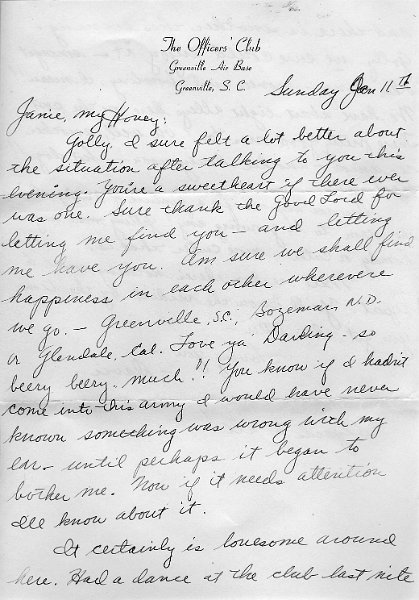 The Officers' Club
Greenville Air Base
Greenville, S. C.
Sunday Jan 11th
Janie, my Honey:
Golly I sure felt a lot better about
the situation after talking to you this
evening. You're a sweetheart if there ever
was one. Sure thank the Good Lord for
letting me find you — and letting
me have you. Am sure we shall find
happiness in each other wherevere
we go. — Greenville, S.C., Bozeman, N.D.
or Glendale, Cal. Love ya' Darling - so
beery beery much"! You know if I hadn't
come into this army I would have never
known something was wrong with my
ear - until perhaps it began to
bother me. Now if it needs attention
I'll know about it.
It certainly is lonesome around
here. Had a dance at the club last nite